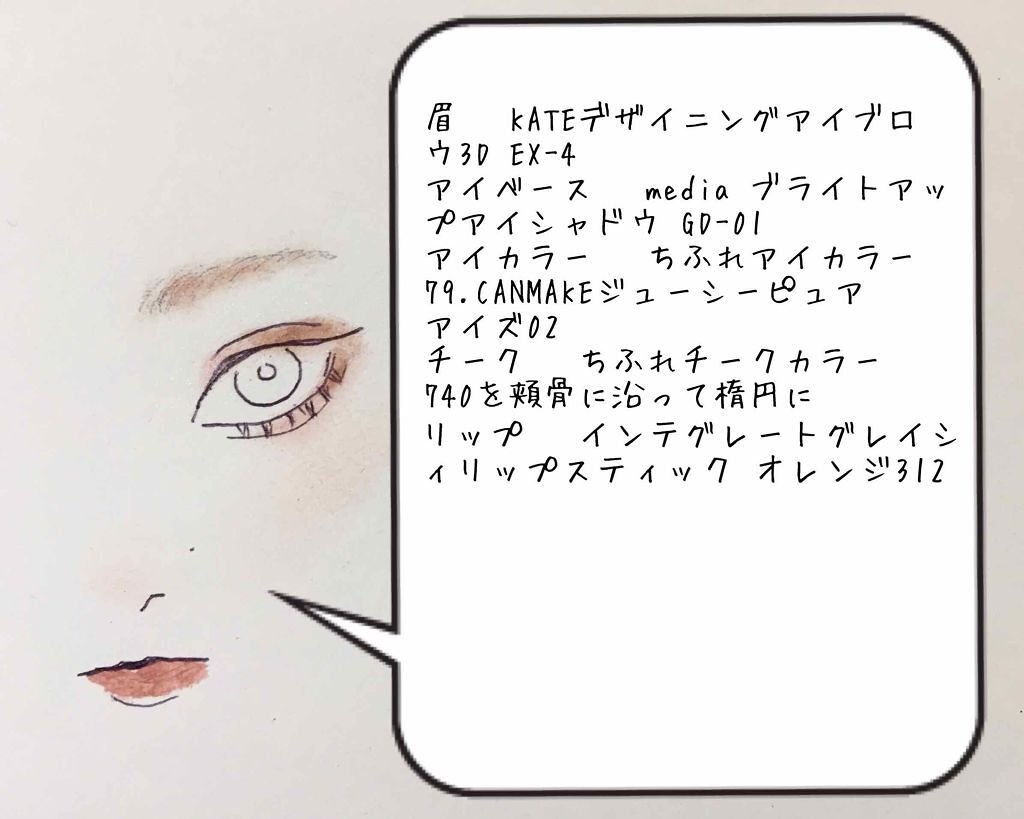 眉　KATEデザイニングアイブロ
ウ3D EX-4
アイベース　media ブライトアッ
プアイシャドウ GD-01
アイカラー　ちふれアイカラー
79.CANMAKEジューシーピュア
アイズ02
チーク　ちふれチークカラー
740を頬骨に沿って楕円に
リップ　インテグレートグレイシ
ィリップスティック オレンジ312